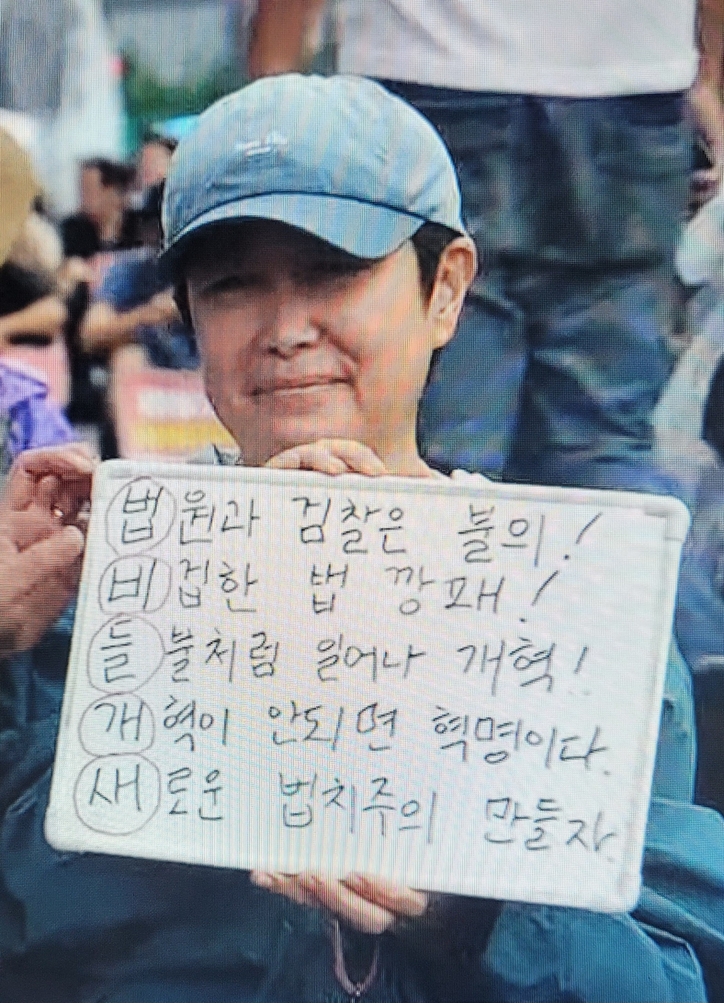 법원과 검찰은 불의!
비겁한 법 깡패!
들불처럼 일어나 개혁!
개혁이 안되면 혁명이다.
새로운 법치주의 만들자.